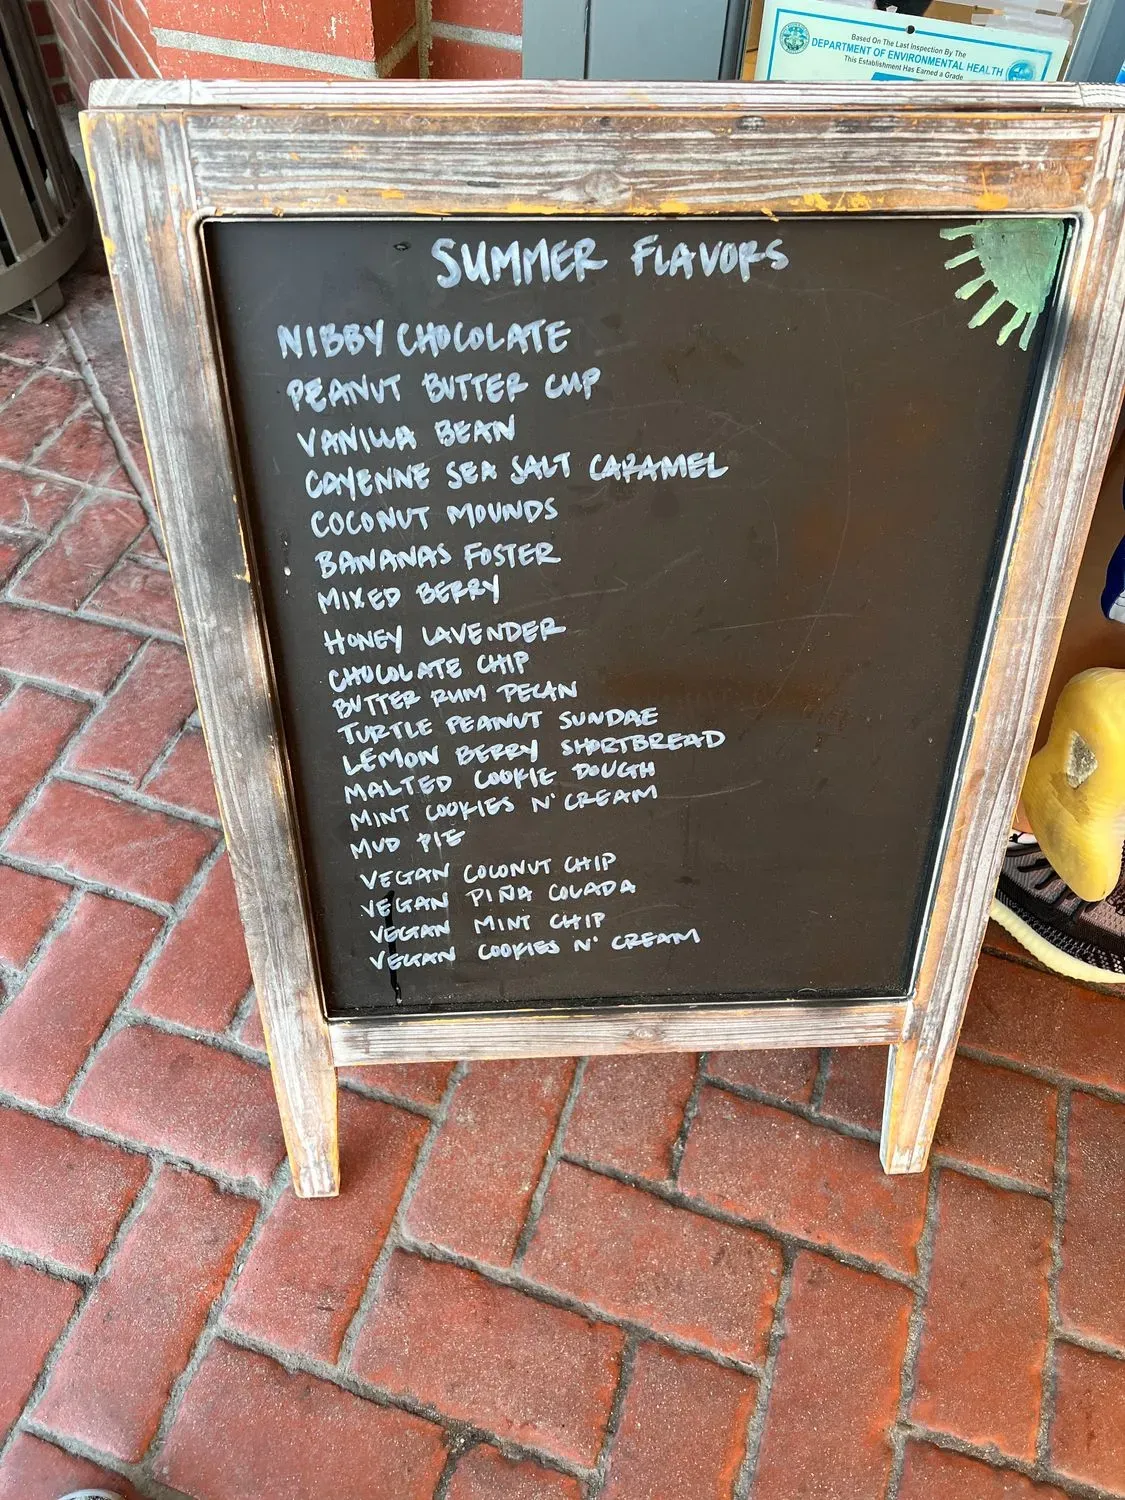 Based On The Last Inspection By The
DEPARTMENT OF ENVIRONMENTAL HEALTH
This Establishment Has Earned a Grade
SUMMER FLAVORS
NIBBY CHOCOLATE
PEANUT BUTTER CUP
VANILLA BEAN
CAYENNE SEA SALT CARAMEL
COCONUT MOUNDS
BANANAS FOSTER
MIXED BERRY
HONEY LAVENDER
CHOCOLATE CHIP
BUTTER RUM PECAN
TURTLE PEANUT SUNDAE
LEMON BERRY SHORTBREAD
MALTED COOKIE DOUGH
MINT COOKIES N' CREAM
MUD PIE
VEGAN COCONUT CHIP
VEGAN PIÑA COLADA
VEGAN MINT CHIP
VEGAN COOKIES N' CREAM